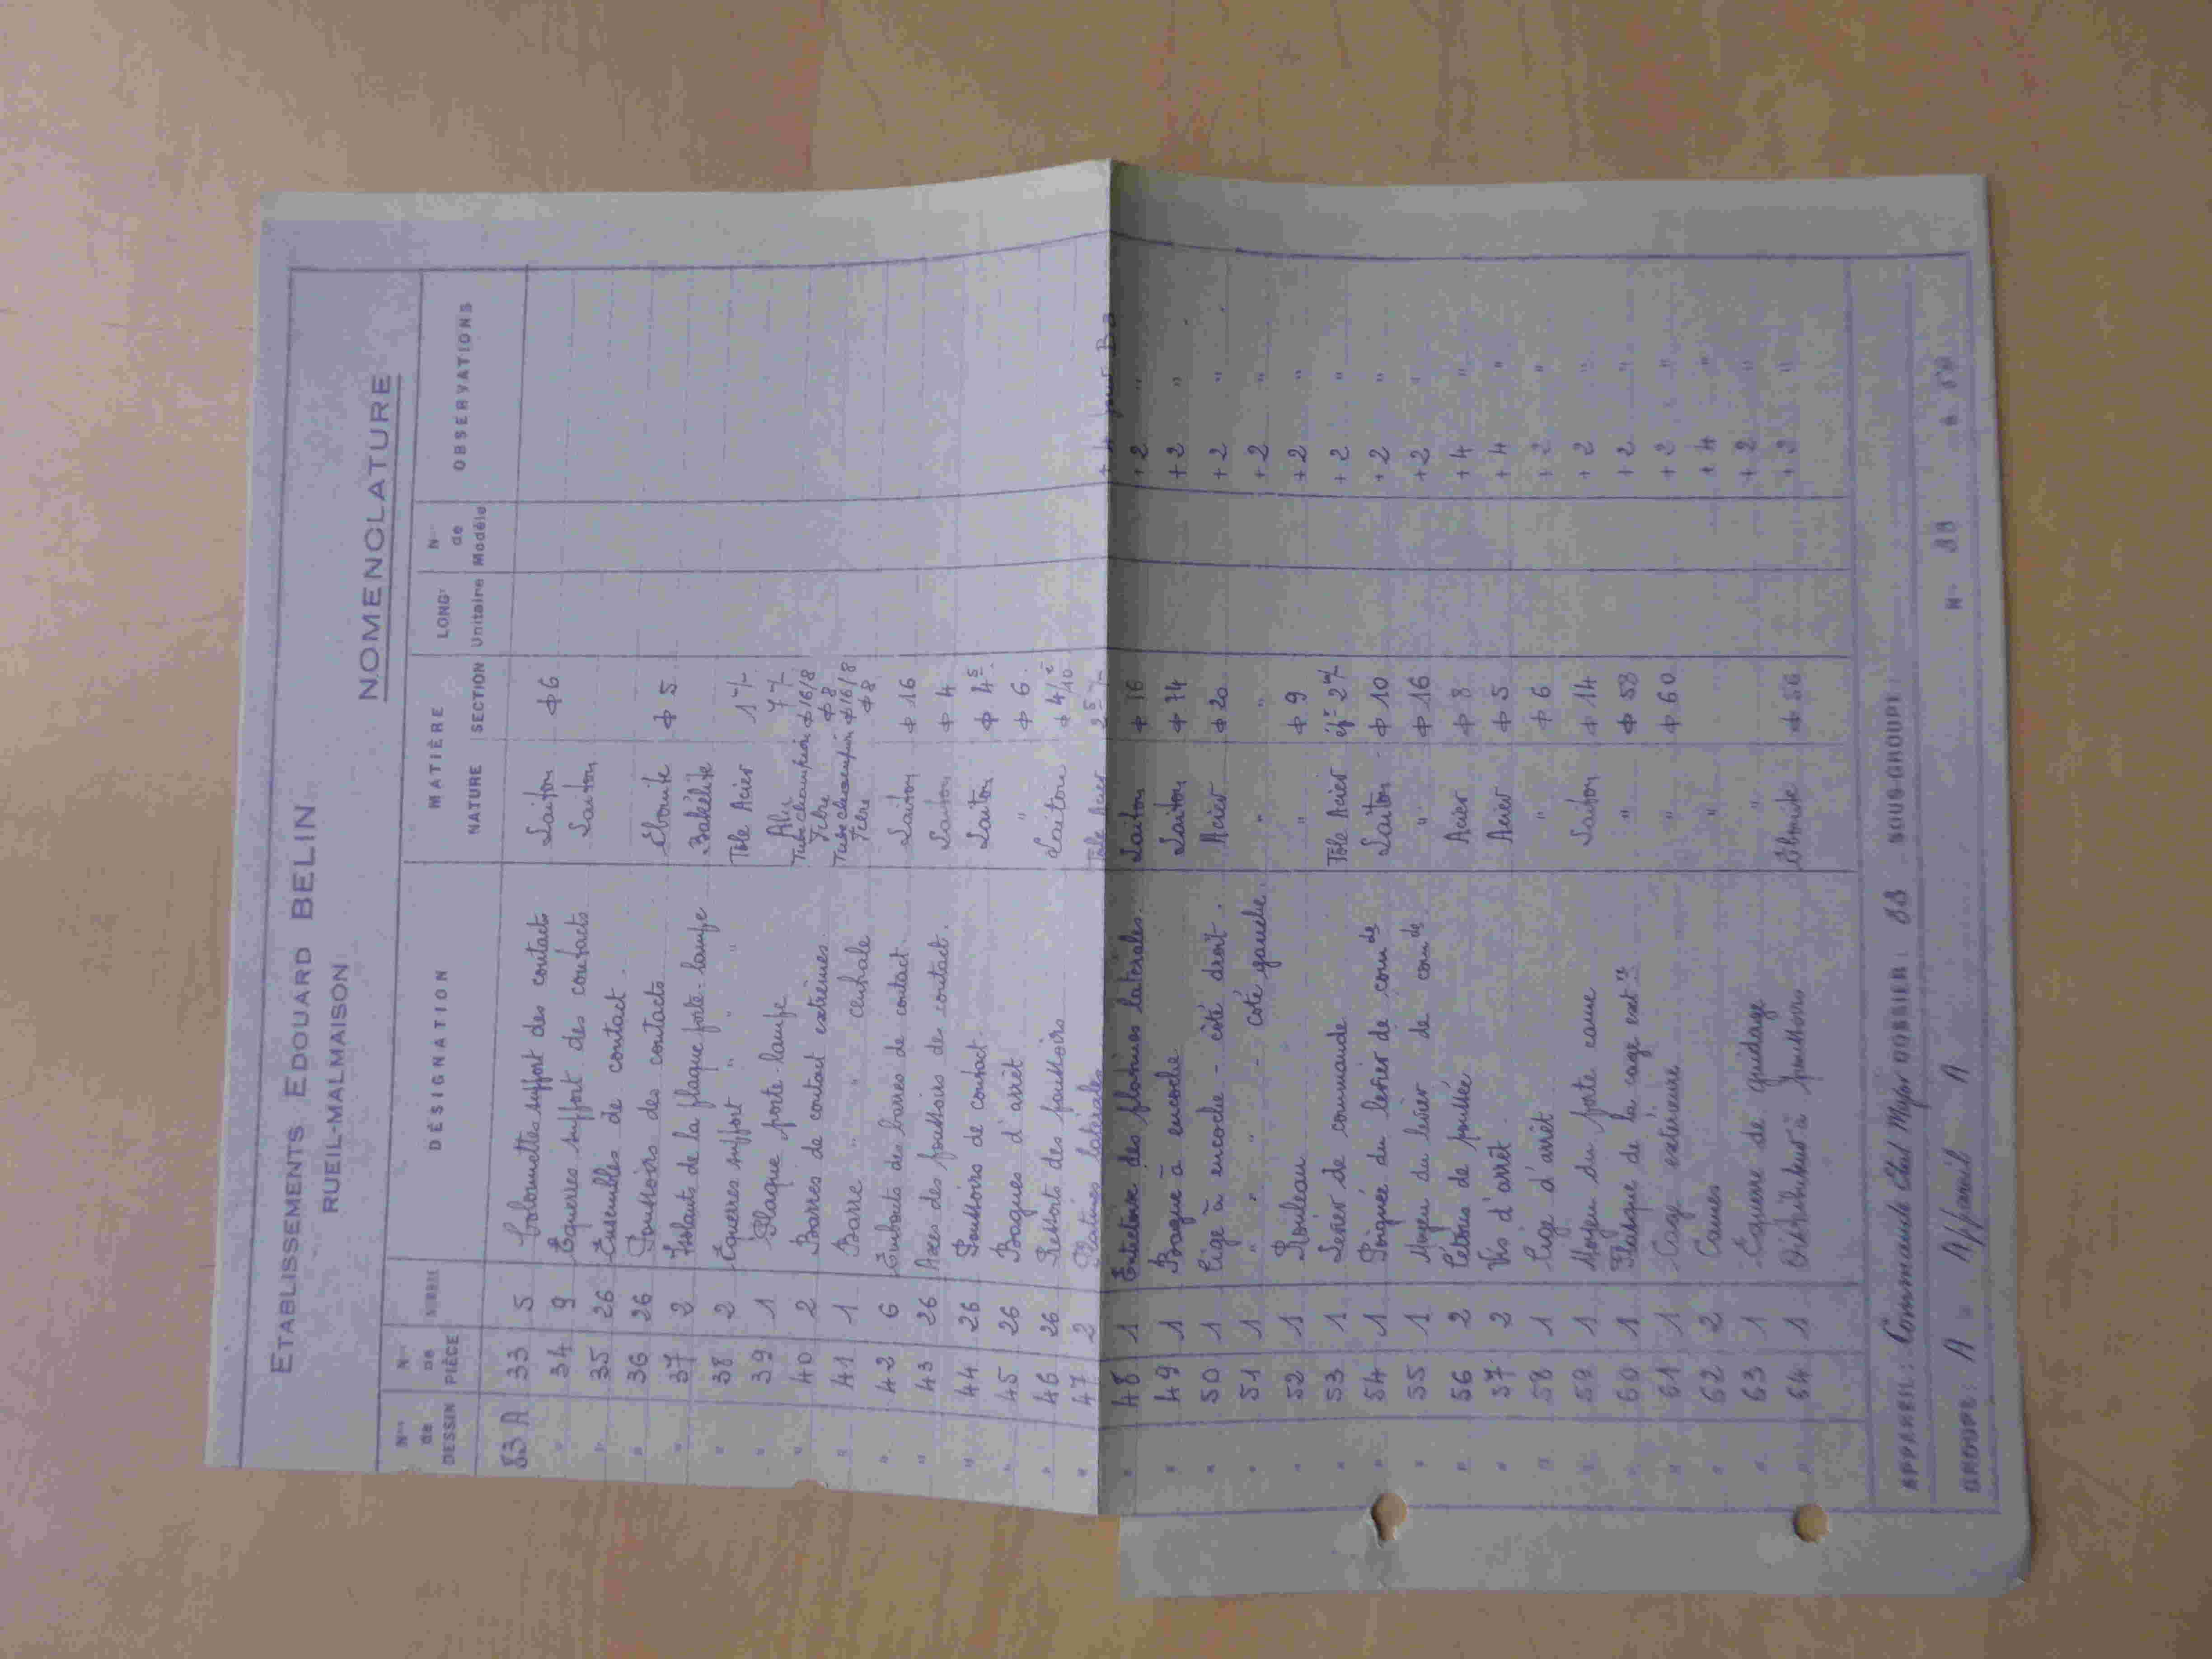 ETABLISSEMENTS EDOUARD BELIN
RUEIL-MALMAISON
NOMENCLATURE
Nos de DESSIN N° de PIÈCE NBRE DÉSIGNATION MATIÈRE NATURE SECTION LONGr Unitaire N° de Modèle OBSERVATIONS
83 A 33 5 Colonnettes support des contacts Laiton ϕ 6
" 34 9 Equerres support des contacts Laiton
" 35 26 Ensembles de contact.
" 36 26 Poussoirs des contacts Ebonite ϕ 5
" 37 2 Isolants de la plaque porte-lampe Bakélite
" 38 2 Equerres support " " " Tôle Acier 1 m/m
" 39 1 Plaque porte lampe Alu 7 m/m
" 40 2 Barres de contact extrêmes Tube champion ϕ 16/8 Fibre ϕ 8
" 41 1 Barre " " centrale Tube champion ϕ 16/8 Fibre ϕ 8
" 42 6 Embouts des barres de contact. Laiton ϕ 16
" 43 26 Axes des poussoirs de contact. Laiton ϕ 4
" 44 26 Poussoirs de contact. Laiton ϕ 4 5
" 45 26 Bagues d'arrêt " ϕ 6
" 46 26 Ressorts des poussoirs Laiton ϕ 4/10 e
" 47 2 Platines latérales Tôle Acier
" 48 1 Entretoise des platines latérales. Laiton ϕ 16 + 2 "
" 49 1 Bague à encoche Laiton ϕ 14 + 2 "
" 50 1 Tige à encoche - côté droit. Acier ϕ 20 + 2 "
" 51 1 " " " - côté gauche. " " + 2 "
" 52 1 Rouleau " ϕ 9 + 2 "
" 53 1 Levier de commande Tôle Acier épr 2 m/m + 2 "
" 54 1 Poignée du levier de comde Laiton ϕ 10 + 2 "
" 55 1 Moyeu du levier de comde " ϕ 16 + 2 "
" 56 2 Tétons de poussée Acier ϕ 8 + 4 "
" 57 2 Vis d'arrêt. Acier ϕ 5 + 4 "
" 58 1 Tige d'arrêt " ϕ 6 + 2 "
" 59 1 Moyeu du porte came Laiton ϕ 14 + 2 "
" 60 1 Flasque de la cage extre " ϕ 58 + 2 "
" 61 1 Cage extérieure " ϕ 60 + 2 "
" 62 2 Cames " + 4 "
" 63 1 Equerre de guidage " + 2 "
" 64 1 Distributeur à poussoirs Ebonite ϕ 56 + 2 "
APPAREIL: Commande DOSSIER: 83 SOUS-GROUPE:
GROUPE: A = Appareil A N° 83